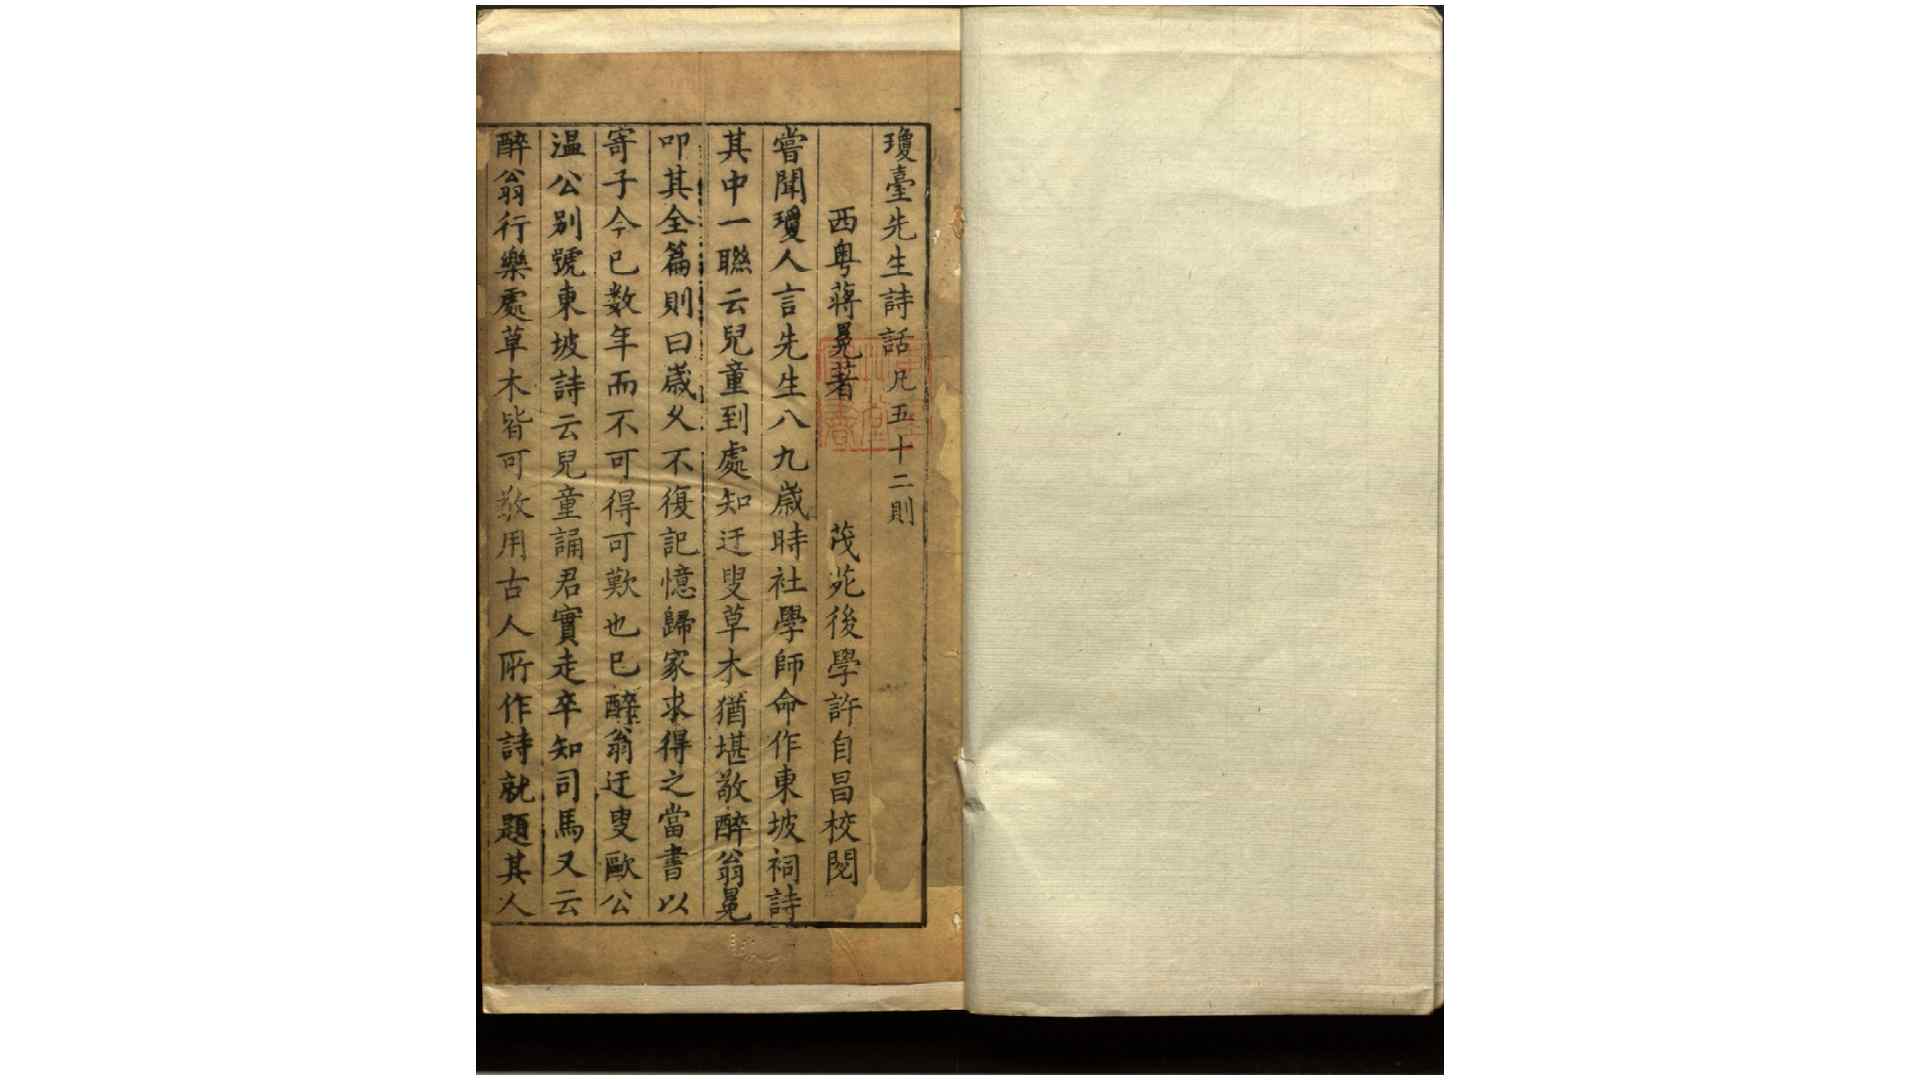 瓊臺先生詩話凡五十二則
西粤蔣冕著 茂苑後學許自昌校閱
嘗聞瓊人言先生八九歲時社學師命作東坡祠詩
其中一聯云兒童到處知迂叟草木猶堪敬醉翁冕
叩其全篇則曰歲久不復記憶歸家求得之當書以
寄子今已数年而不可得可歎也已醉翁迂叟歐公
温公别號東坡詩云兒童誦君實走卒知司馬又云
醉翁行樂處草木皆可敬用古人所作詩就題其人